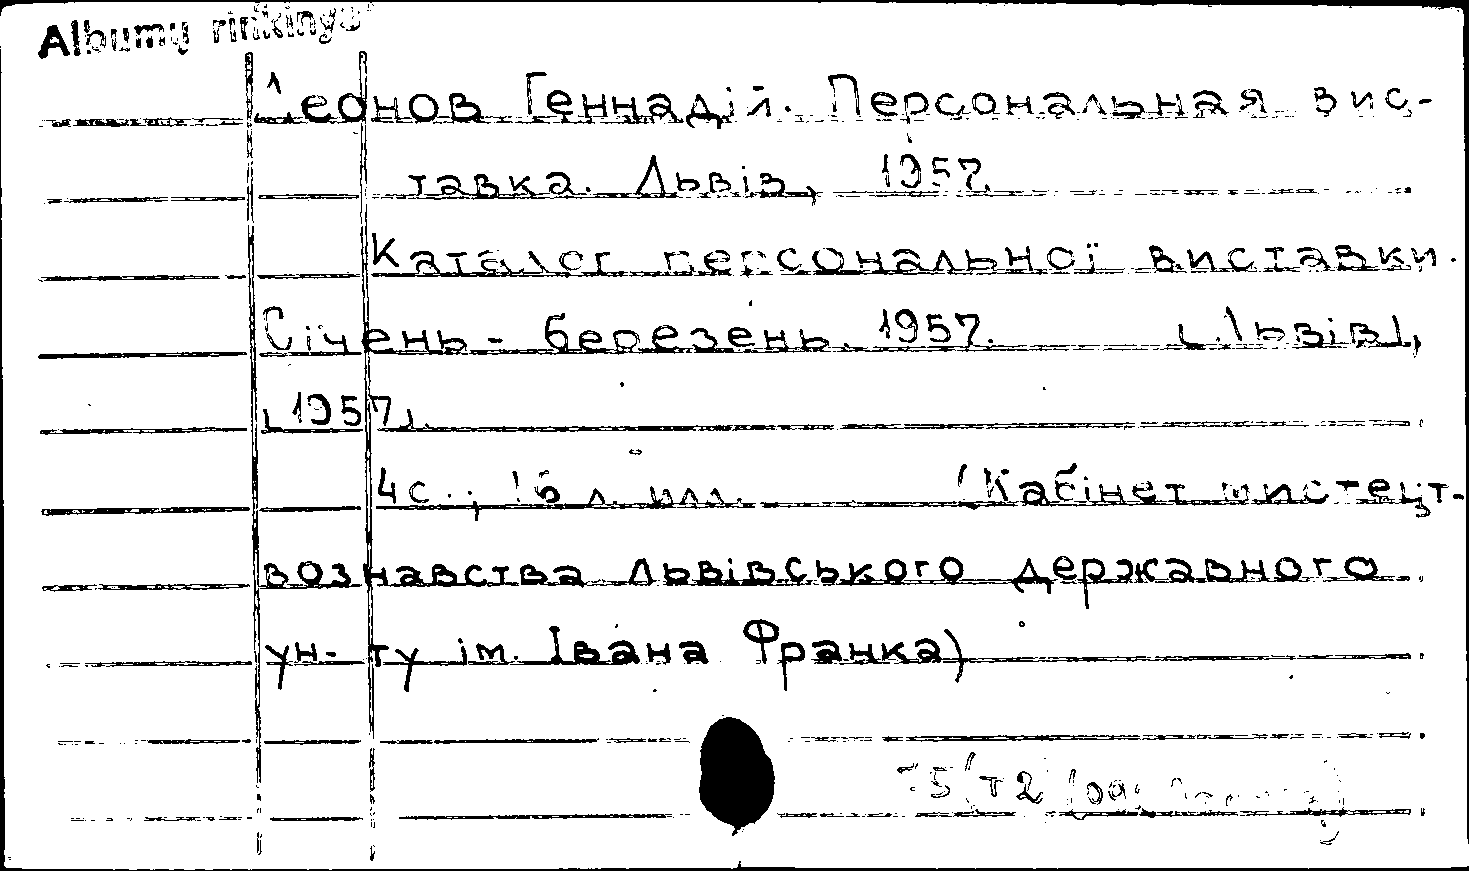 Albumų rinkinys
Леонов Геннадій. Персональная вис-
тавка. Львів, 1957.
Каталог персональної виставки.
Січень - березень. 1957. [Львів],
[1957].
4с.; 16 л. илл. (Кабінет мистецт-
вознавства Львівського державного
ун-ту ім. Івана Франка)